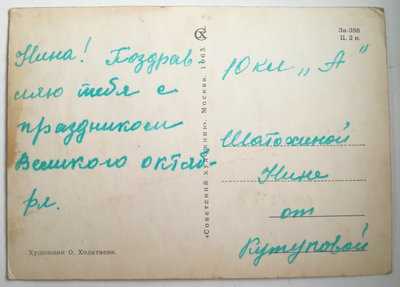 Нина! Поздрав-
ляю тебя с
праздником
Великого октяб-
ря.
Художник О. Ходатаева.
«Советский художник». Москва. 1965.
За-398
Ц. 2 к.
10 кл „А"
Шатохиной
Нине
от
Кутуповой